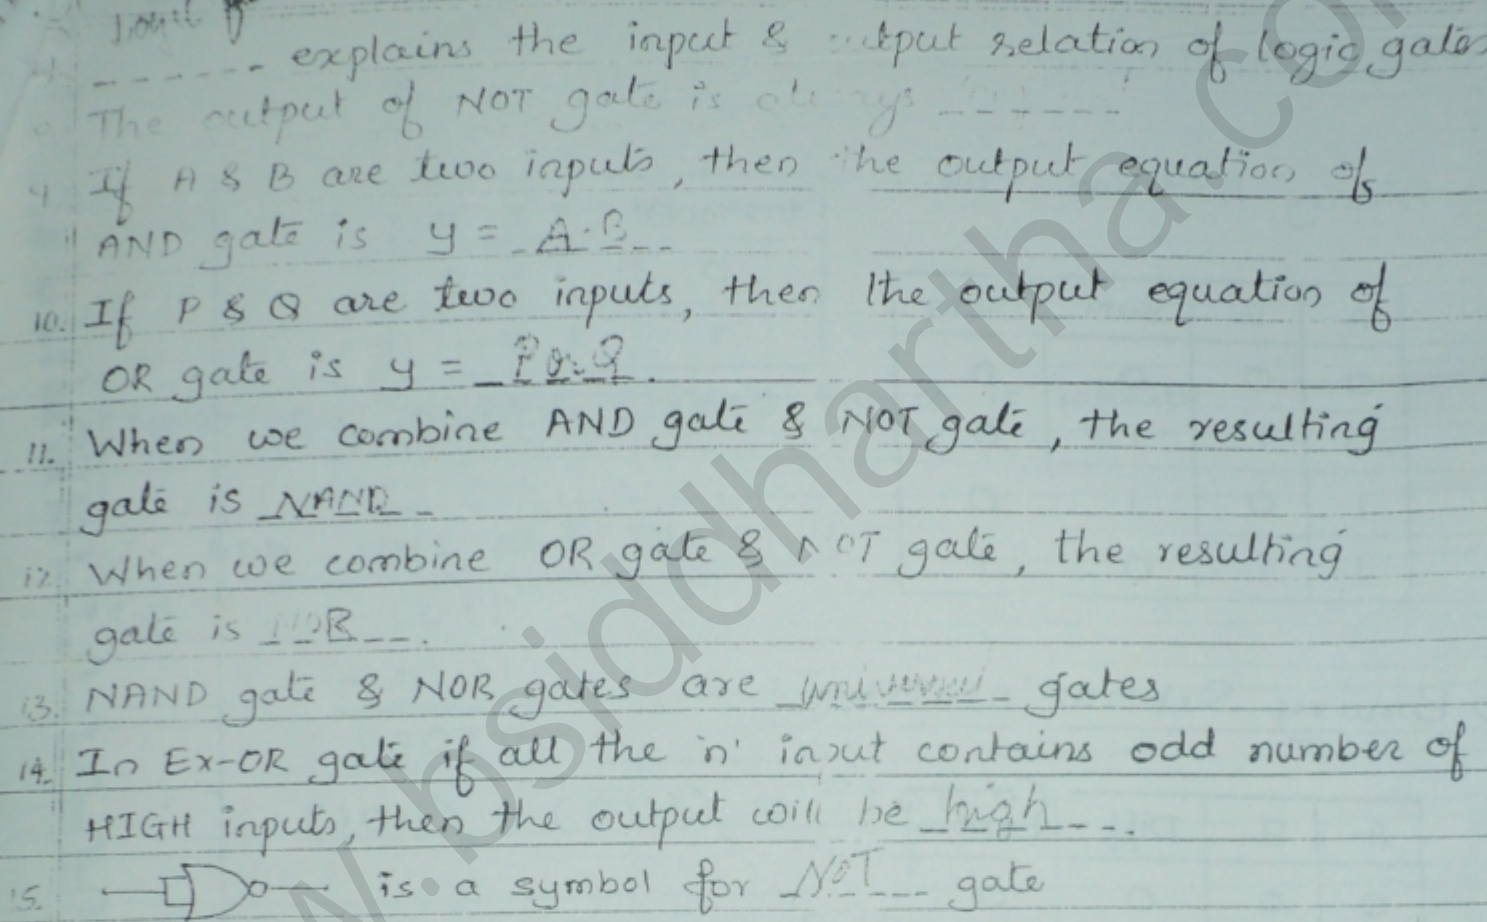 ------ explains the input & output relation of logic gates
The output of NOT gate is always ------
9. If A & B are two inputs, then the output equation of
AND gate is y = A.B
10. If P & Q are two inputs, then the output equation of
OR gate is y = P or Q.
11. When we combine AND gate & NOT gate, the resulting
gate is NAND
12. When we combine OR gate & NOT gate, the resulting
gate is NOR.
13. NAND gate & NOR gates are universal gates
14. In Ex-OR gate if all the 'n' input contains odd number of
HIGH inputs, then the output will be high.
15. is a symbol for NOT gate
w.bsiddhartha.co